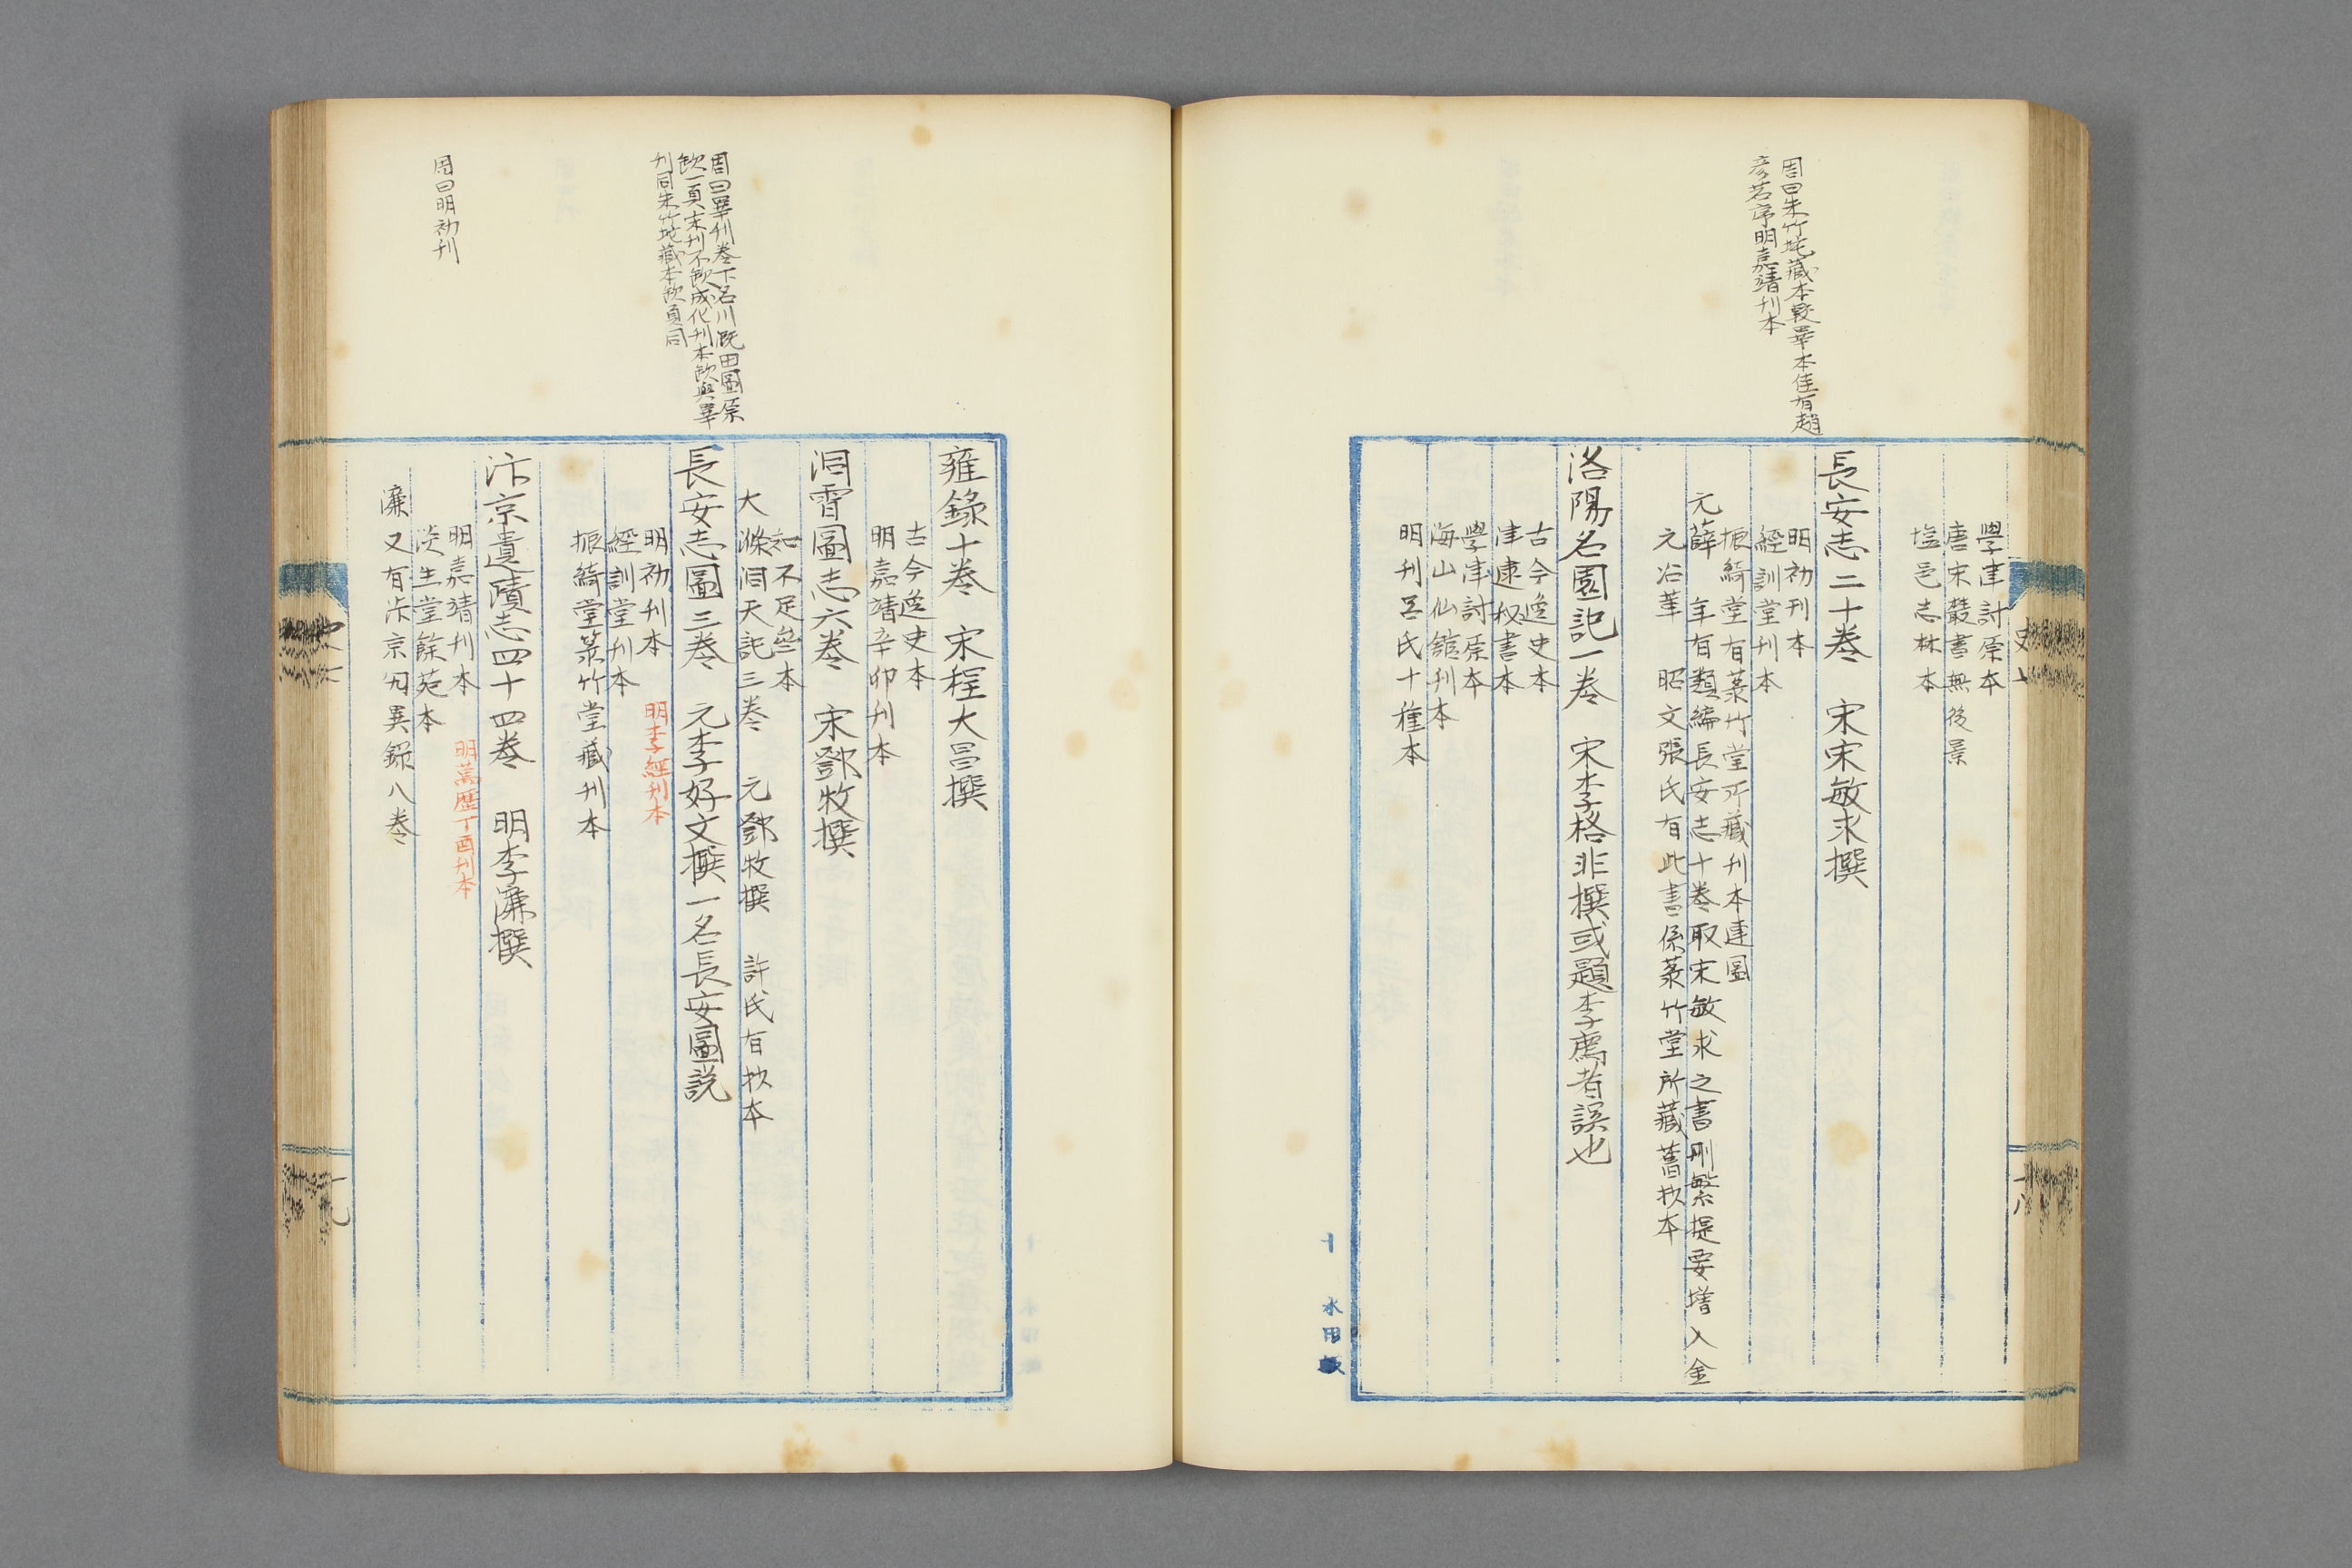 周曰朱竹垞藏本較畢本佳有趙
彦若序明嘉靖刊本
學津討原本
唐宋叢書無後景
塩邑志林本
長安志二十卷　宋宋敏求撰
明初刊本
經訓堂刊本
振綺堂有菉竹堂所藏刊本連圖
元薛　年有類編長安志十卷取宋敏求之書刪繁提要增入金
元沿革　昭文張氏有此書係菉竹堂所藏舊抄本
洛陽名園記一卷　宋李格非撰或題李廌者誤也
古今逸史本
津逮秘書本
學津討原本
海山仙館刊本
明刊呂氏十種本
史
十八
周曰畢刊卷下名川既田圖原
缺一頁末刊不缺成化刊本缺與畢
刊同朱竹垞藏本缺頁同
周曰明初刊
雍錄十卷　宋程大昌撰
古今逸史本
明嘉靖辛卯刊本
洞霄圖志六卷　宋鄧牧撰
知不足叁本
大滌洞天記三卷　元鄧牧撰　許氏有抄本
長安志圖三卷　元李好文撰一名長安圖説
明初刊本　明李經刊本
經訓堂刊本
振綺堂菉竹堂藏刊本
汴京遺蹟志四十四卷　明李濂撰
明嘉靖刊本　明萬歴丁酉刊本
淡生堂餘苑本
濂又有汴京知異錄八卷